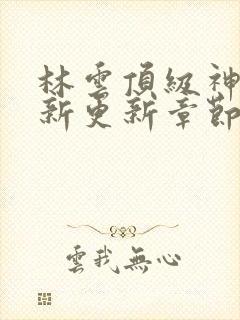 林雲頂級神
新更新章節
雲我無心